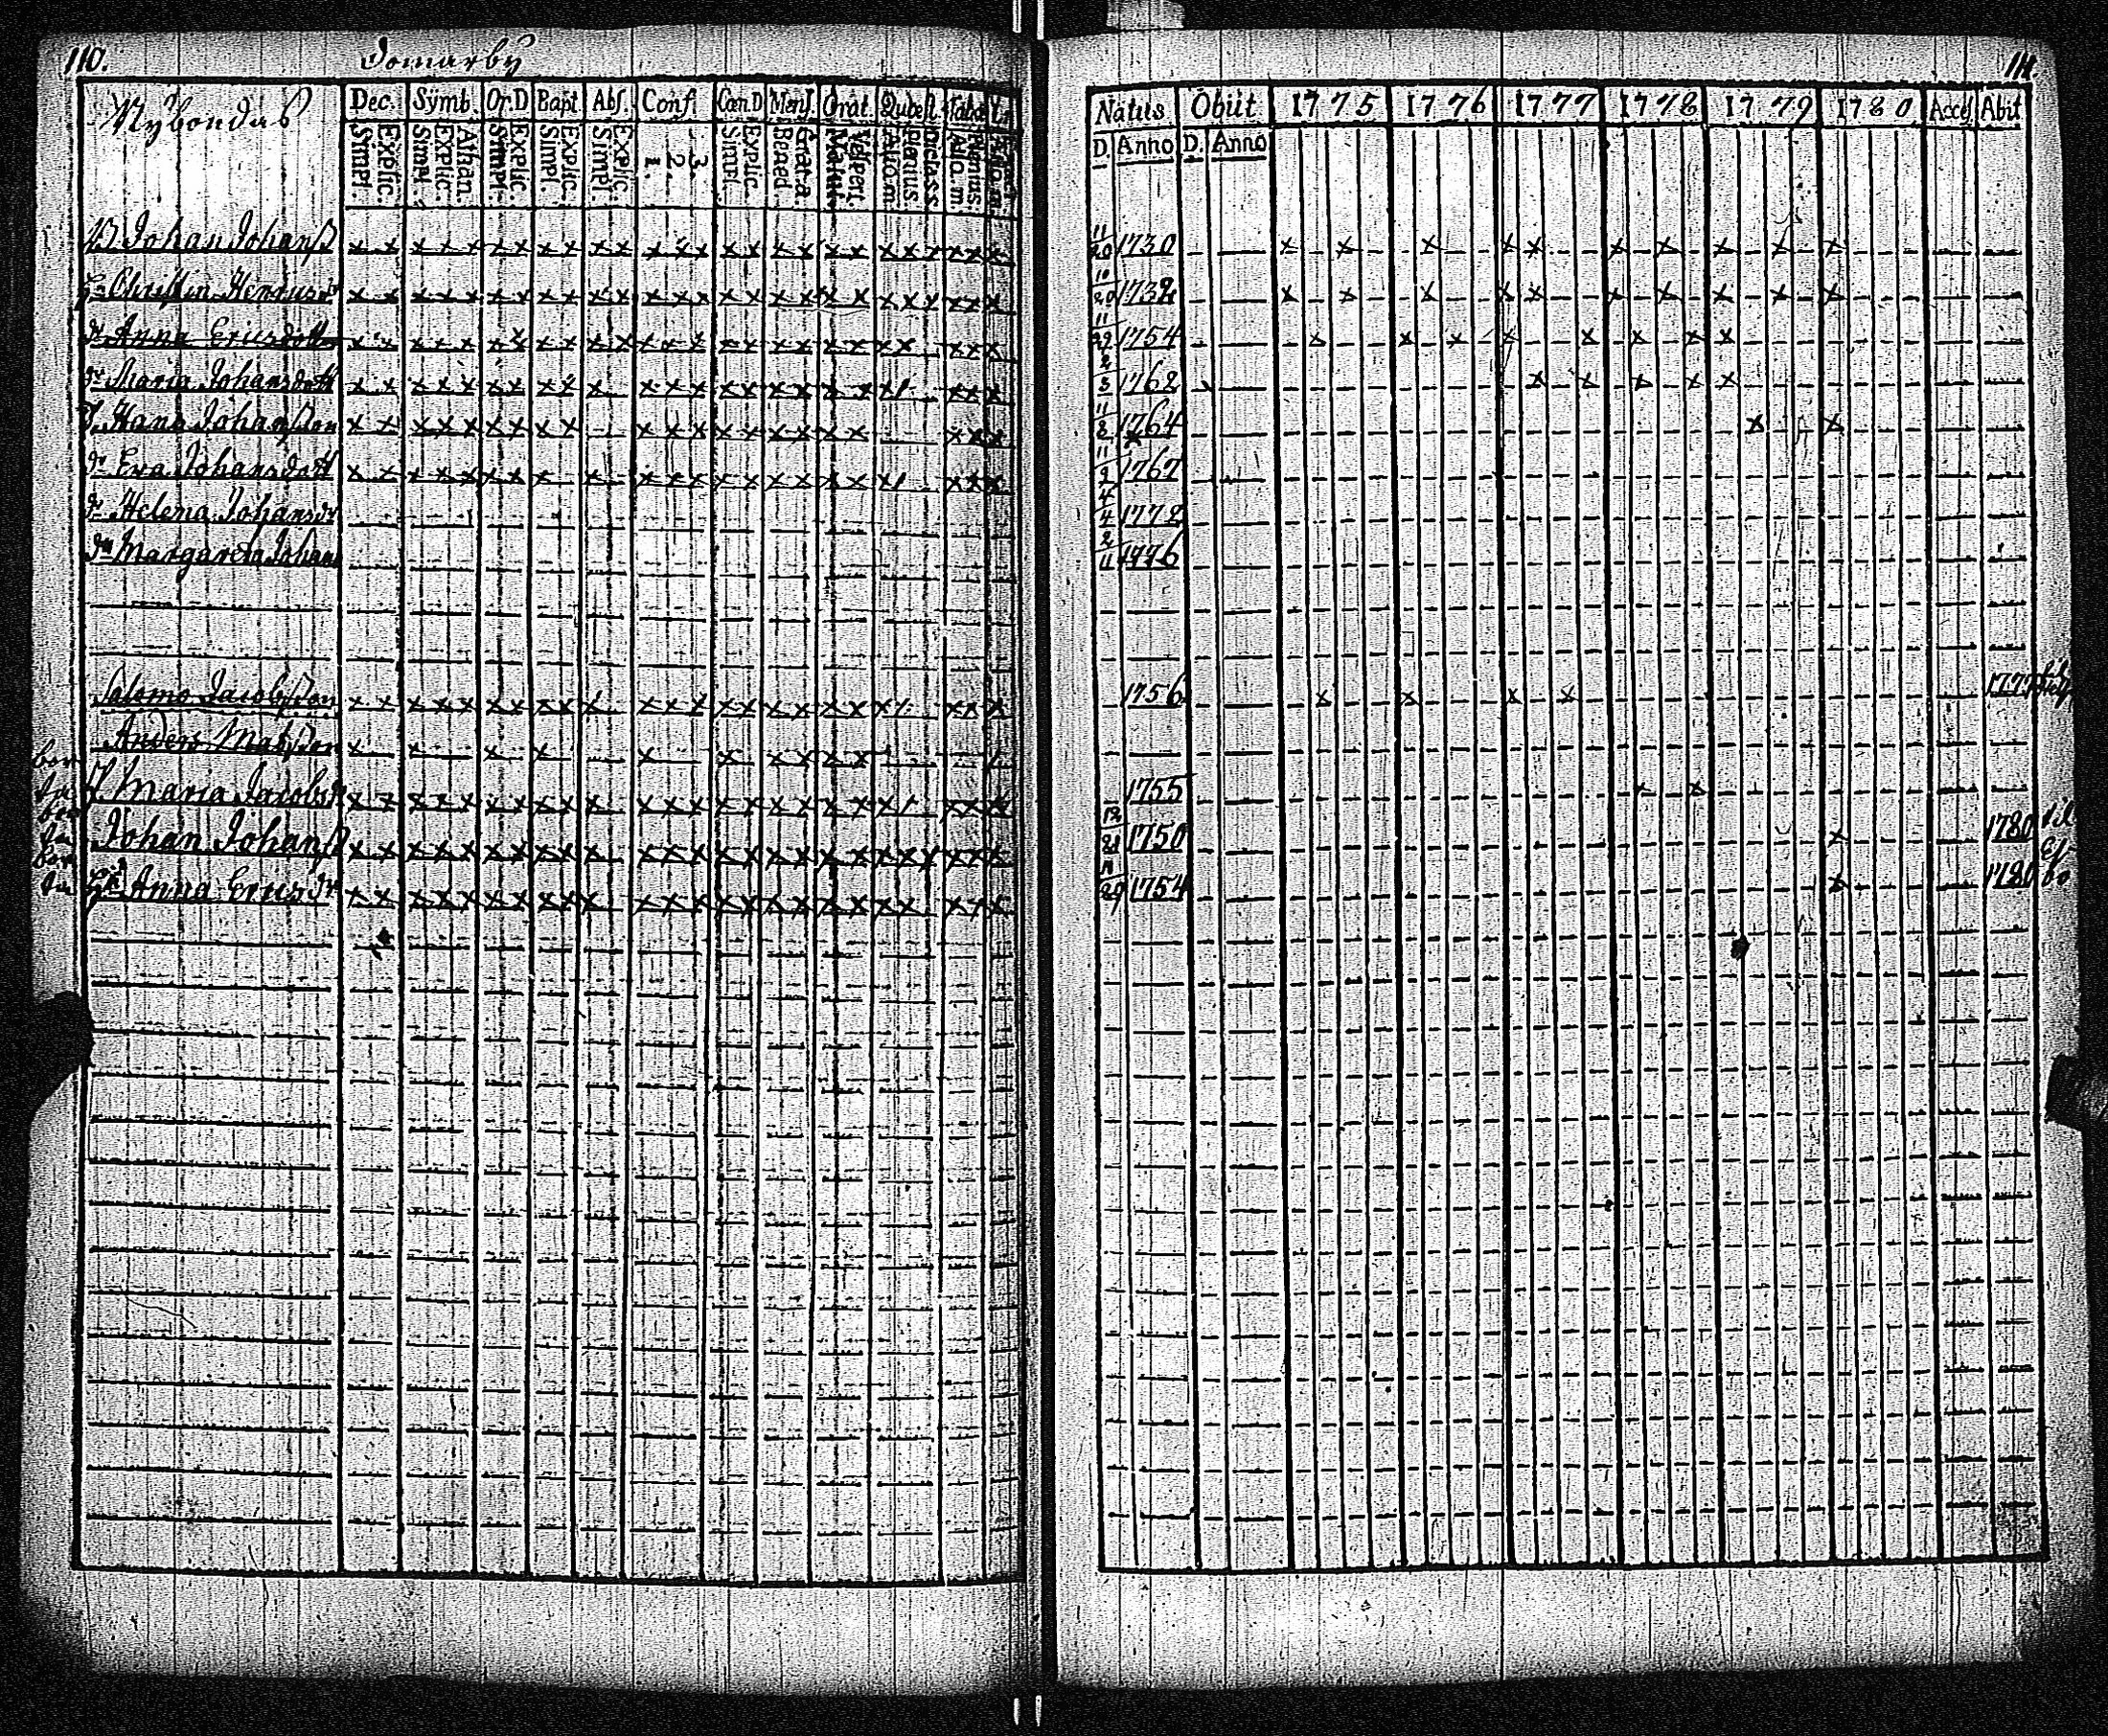 110. Domarby
Nybondas Dec. Symb. Or.D Bapt. Abs. Conf. Cœn.D Mens. Orat. Qvæst. Tabæ
Simpl. Explic. Simpl. Explic. Athan. Simpl. Explic. Simpl. Explic. Simpl. Explic. 1. 2. 3. Simpl. Explic. Bened. Grat.a. Matut. Vesper. Aliq.m Plenius
B Johan Johanss
Christin Henricsdr
dr Anna Ericsdott
dr Maria Johansdott
Hans Johansson
dr Eva Johansdott
dr Helena Johansdr
dr Margareta Johans
Salomo Jacobsson
Anders Matsson
Maria Jacobsdr
Johan Johanss
Anna Ericsdr
111.
Natus Obiit 1775 1776 1777 1778 1779 1780 Acces Abit
D. Anno D. Anno
11/10 1730
10/20 1732
11/29 1754
2/3 1762
11/8 1764
11/9 1767
4/4 1772
2/11 1776
1756 1777
1755
12/21 1750 1780 til
11/29 1754 1780